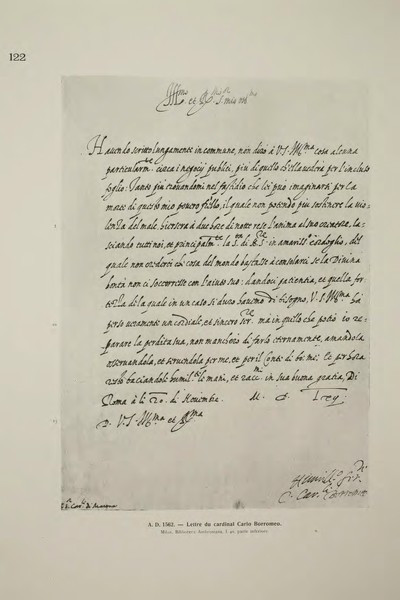 122
Ill.mo et R.mo S.r mio oss.mo
Havendo scritto lungamente in commune, non dirò à V.S. Ill.ma cosa alcuna
particularm.te circa i negocij publici, più di quello ch'ella vedrà per l'incluso
foglio: tanto più trovandomi nel fastidio che lei può imaginarsi per la
morte di questo mio povero fillo, il quale non potendo più sostener la vio-
lenza del male, hiersera à due hore di notte rese l'anima al suo creatore, la-
sciando tutti noi, et principalm.te la S.tà di N.S.re in amariss.o cordoglio, del
quale non crederei ch' cosa del mondo bastasse à consolarci se la Divina
bontà non ci soccorresse con l'aiuto suo: dandoci patientia, et quella for-
tezza di la quale in un caso sì duro havemo di bisogno. V.S. Ill.ma hà
perso veramente un cordiale, et sincero ser.re ma in quello che potrò io re-
parare la perdita sua, non mancherò di farlo eternamente, amandola
osservandola, et servendola per me, et per il Conte di be: me: Et per hora
resto baciandoli humil.te le mani, et racc.mi in sua buona gratia, Di
Roma à li 20. di Novembre. M. D. LXij.
D. V.S. Ill.ma et R.ma
Humill.o ser.re
Il Car.le Borromeo
S.r Car.l di Mantova
A. D. 1562. — Lettre du cardinal Carlo Borromeo.
Milan, Biblioteca Ambrosiana, I 40 parte inferiore.